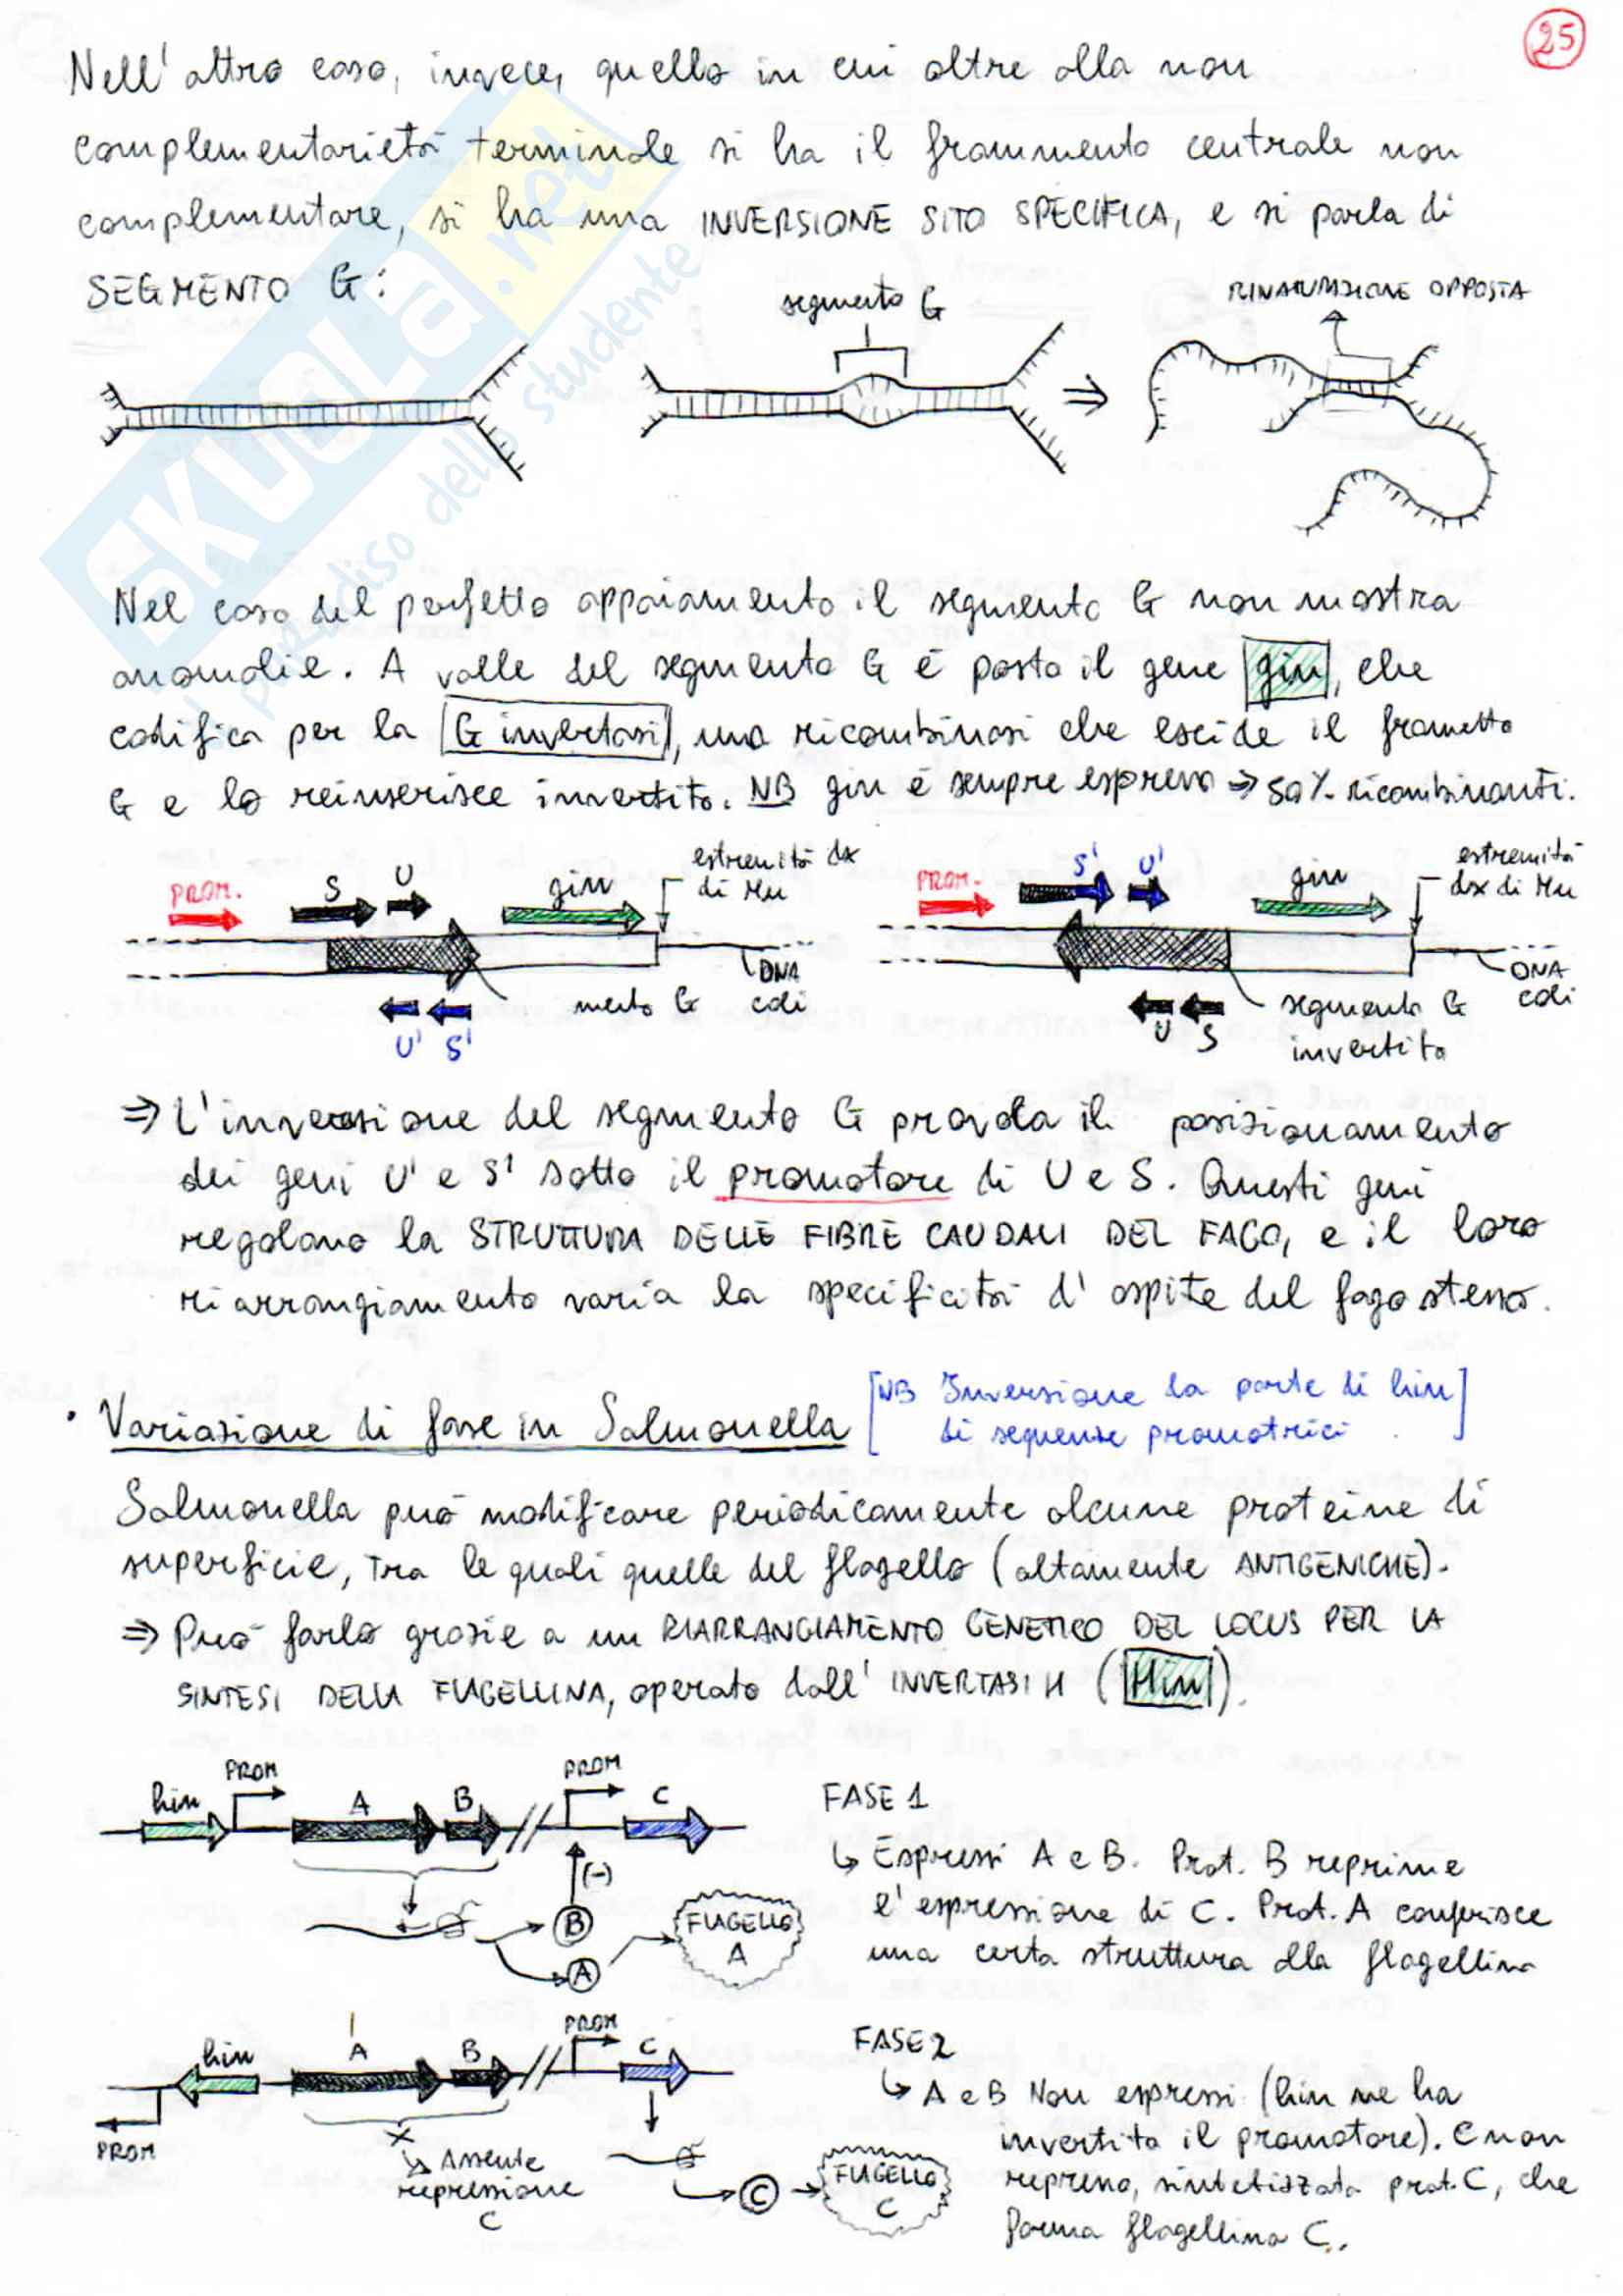 25
Nell'altro caso, invece, quello in cui oltre alla non
complementarietà terminale si ha il frammento centrale non
complementare, si ha una INVERSIONE SITO SPECIFICA, e si parla di
SEGMENTO G:
segmento G
RINATURAZIONE OPPOSTA
Nel caso del perfetto appaiamento il segmento G non mostra
anomalie. A valle del segmento G è posto il gene gin, che
codifica per la G invertasi, una ricombinasi che escide il frametto
G e lo reinserisce invertito. NB gin è sempre espresso ⇒ 50% ricombinanti.
PROM. S U gin estremità dx
di Mu
DNA
coli
mento G
U' S'
PROM. S' U' gin estremità
dx di Mu
DNA
coli
U S
segmento G
invertito
⇒ L'inversione del segmento G provoca il posizionamento
dei geni U' e S' sotto il promotore di U e S. Questi geni
regolano la STRUTTURA DELLE FIBRE CAUDALI DEL FAGO, e il loro
riarrangiamento varia la specificità d'ospite del fago stesso.
• Variazione di fase in Salmonella [NB Inversione da parte di hin]
di sequenze promotrici
Salmonella può modificare periodicamente alcune proteine di
superficie, tra le quali quelle del flagello (altamente ANTIGENICHE).
⇒ Può farlo grazie a un RIARRANGIAMENTO GENETICO DEL LOCUS PER LA
SINTESI DELLA FLAGELLINA, operato dall'INVERTASI H (Hin).
hin PROM A B // PROM C
(-)
B
A
FLAGELLO
A
FASE 1
↳ Espressi A e B. Prot. B reprime
l'espressione di C. Prot. A conferisce
una certa struttura alla flagellina
hin A B // PROM C
PROM
x
↳ Assente
repressione
C
C
FLAGELLO
C
FASE 2
↳ A e B Non espressi (hin ne ha
invertito il promotore). C non
represso, sintetizzata prot. C, che
forma flagellina C.
SKUOLA.net
il paradiso dello studente